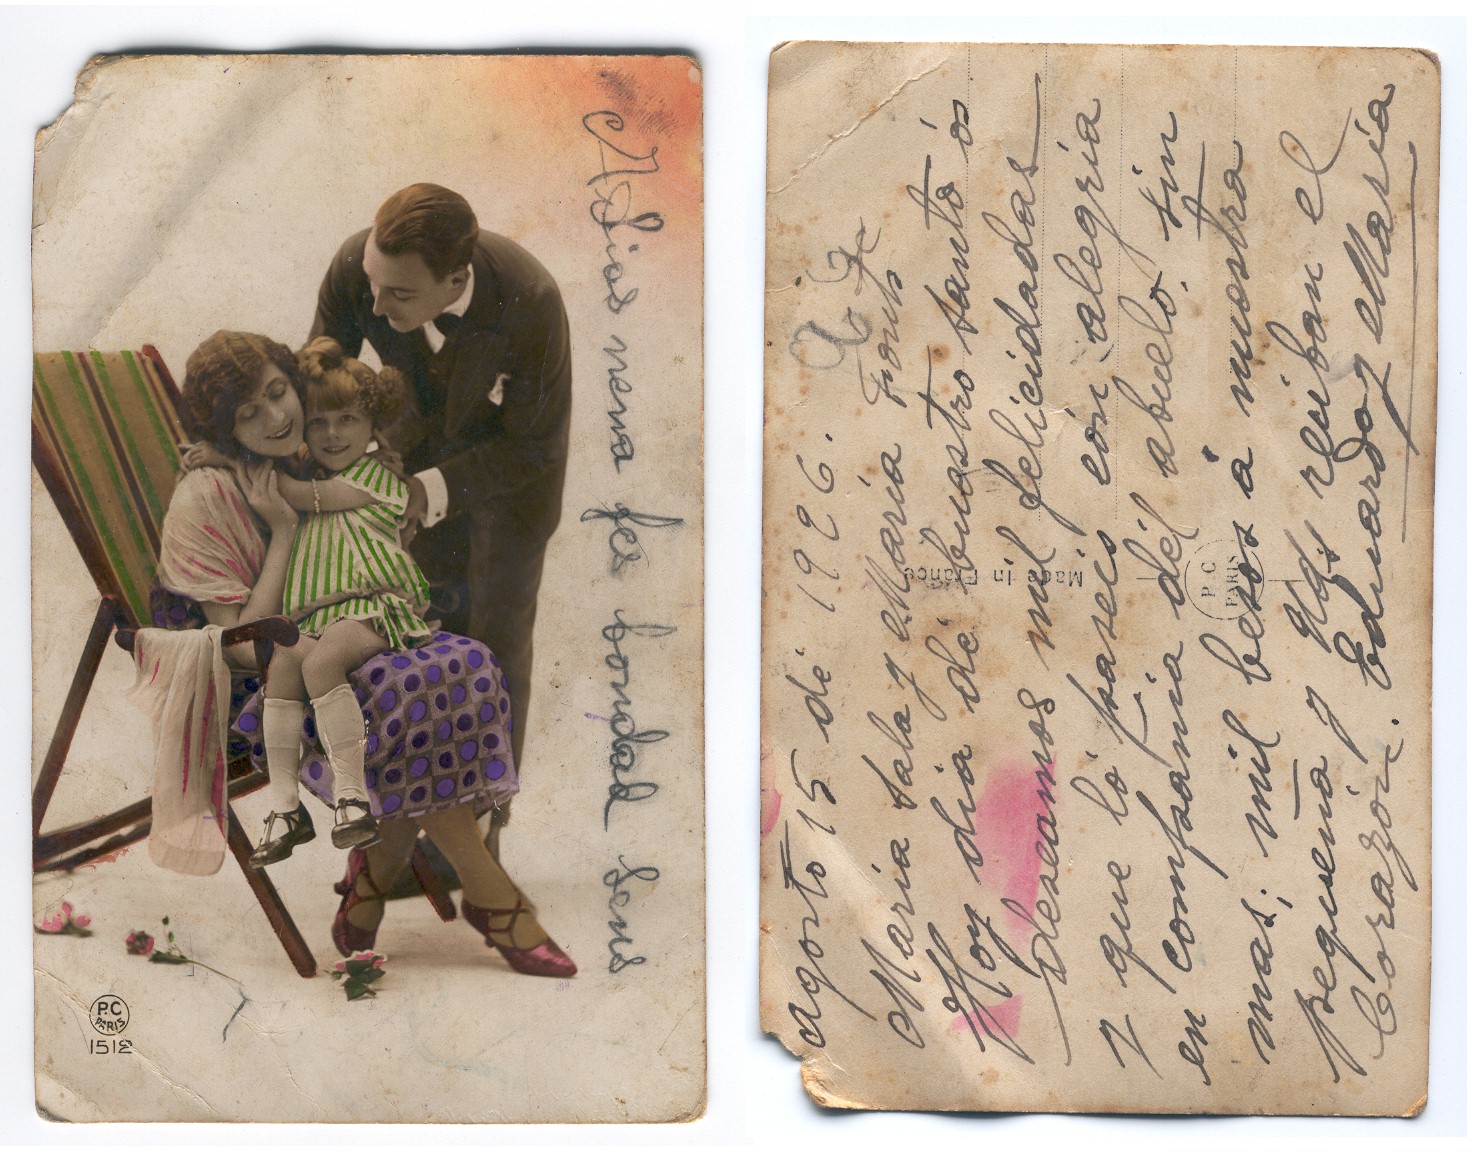 Adios nena fes bondad Jesus
P.C
PARIS
1512
agosto 15 dé 1926.
Maria Sala y Maria Fonts
Hoy dia dé buestro santo ós
deseamos mil felicidadas
y que ló paseis cón alegria
en compañia dél abueló. sin
mas; mil besos á nuestra
pequeña y Uds reciban el
Corazón. Eduardo y Maria
Made in France
P C
PARIS